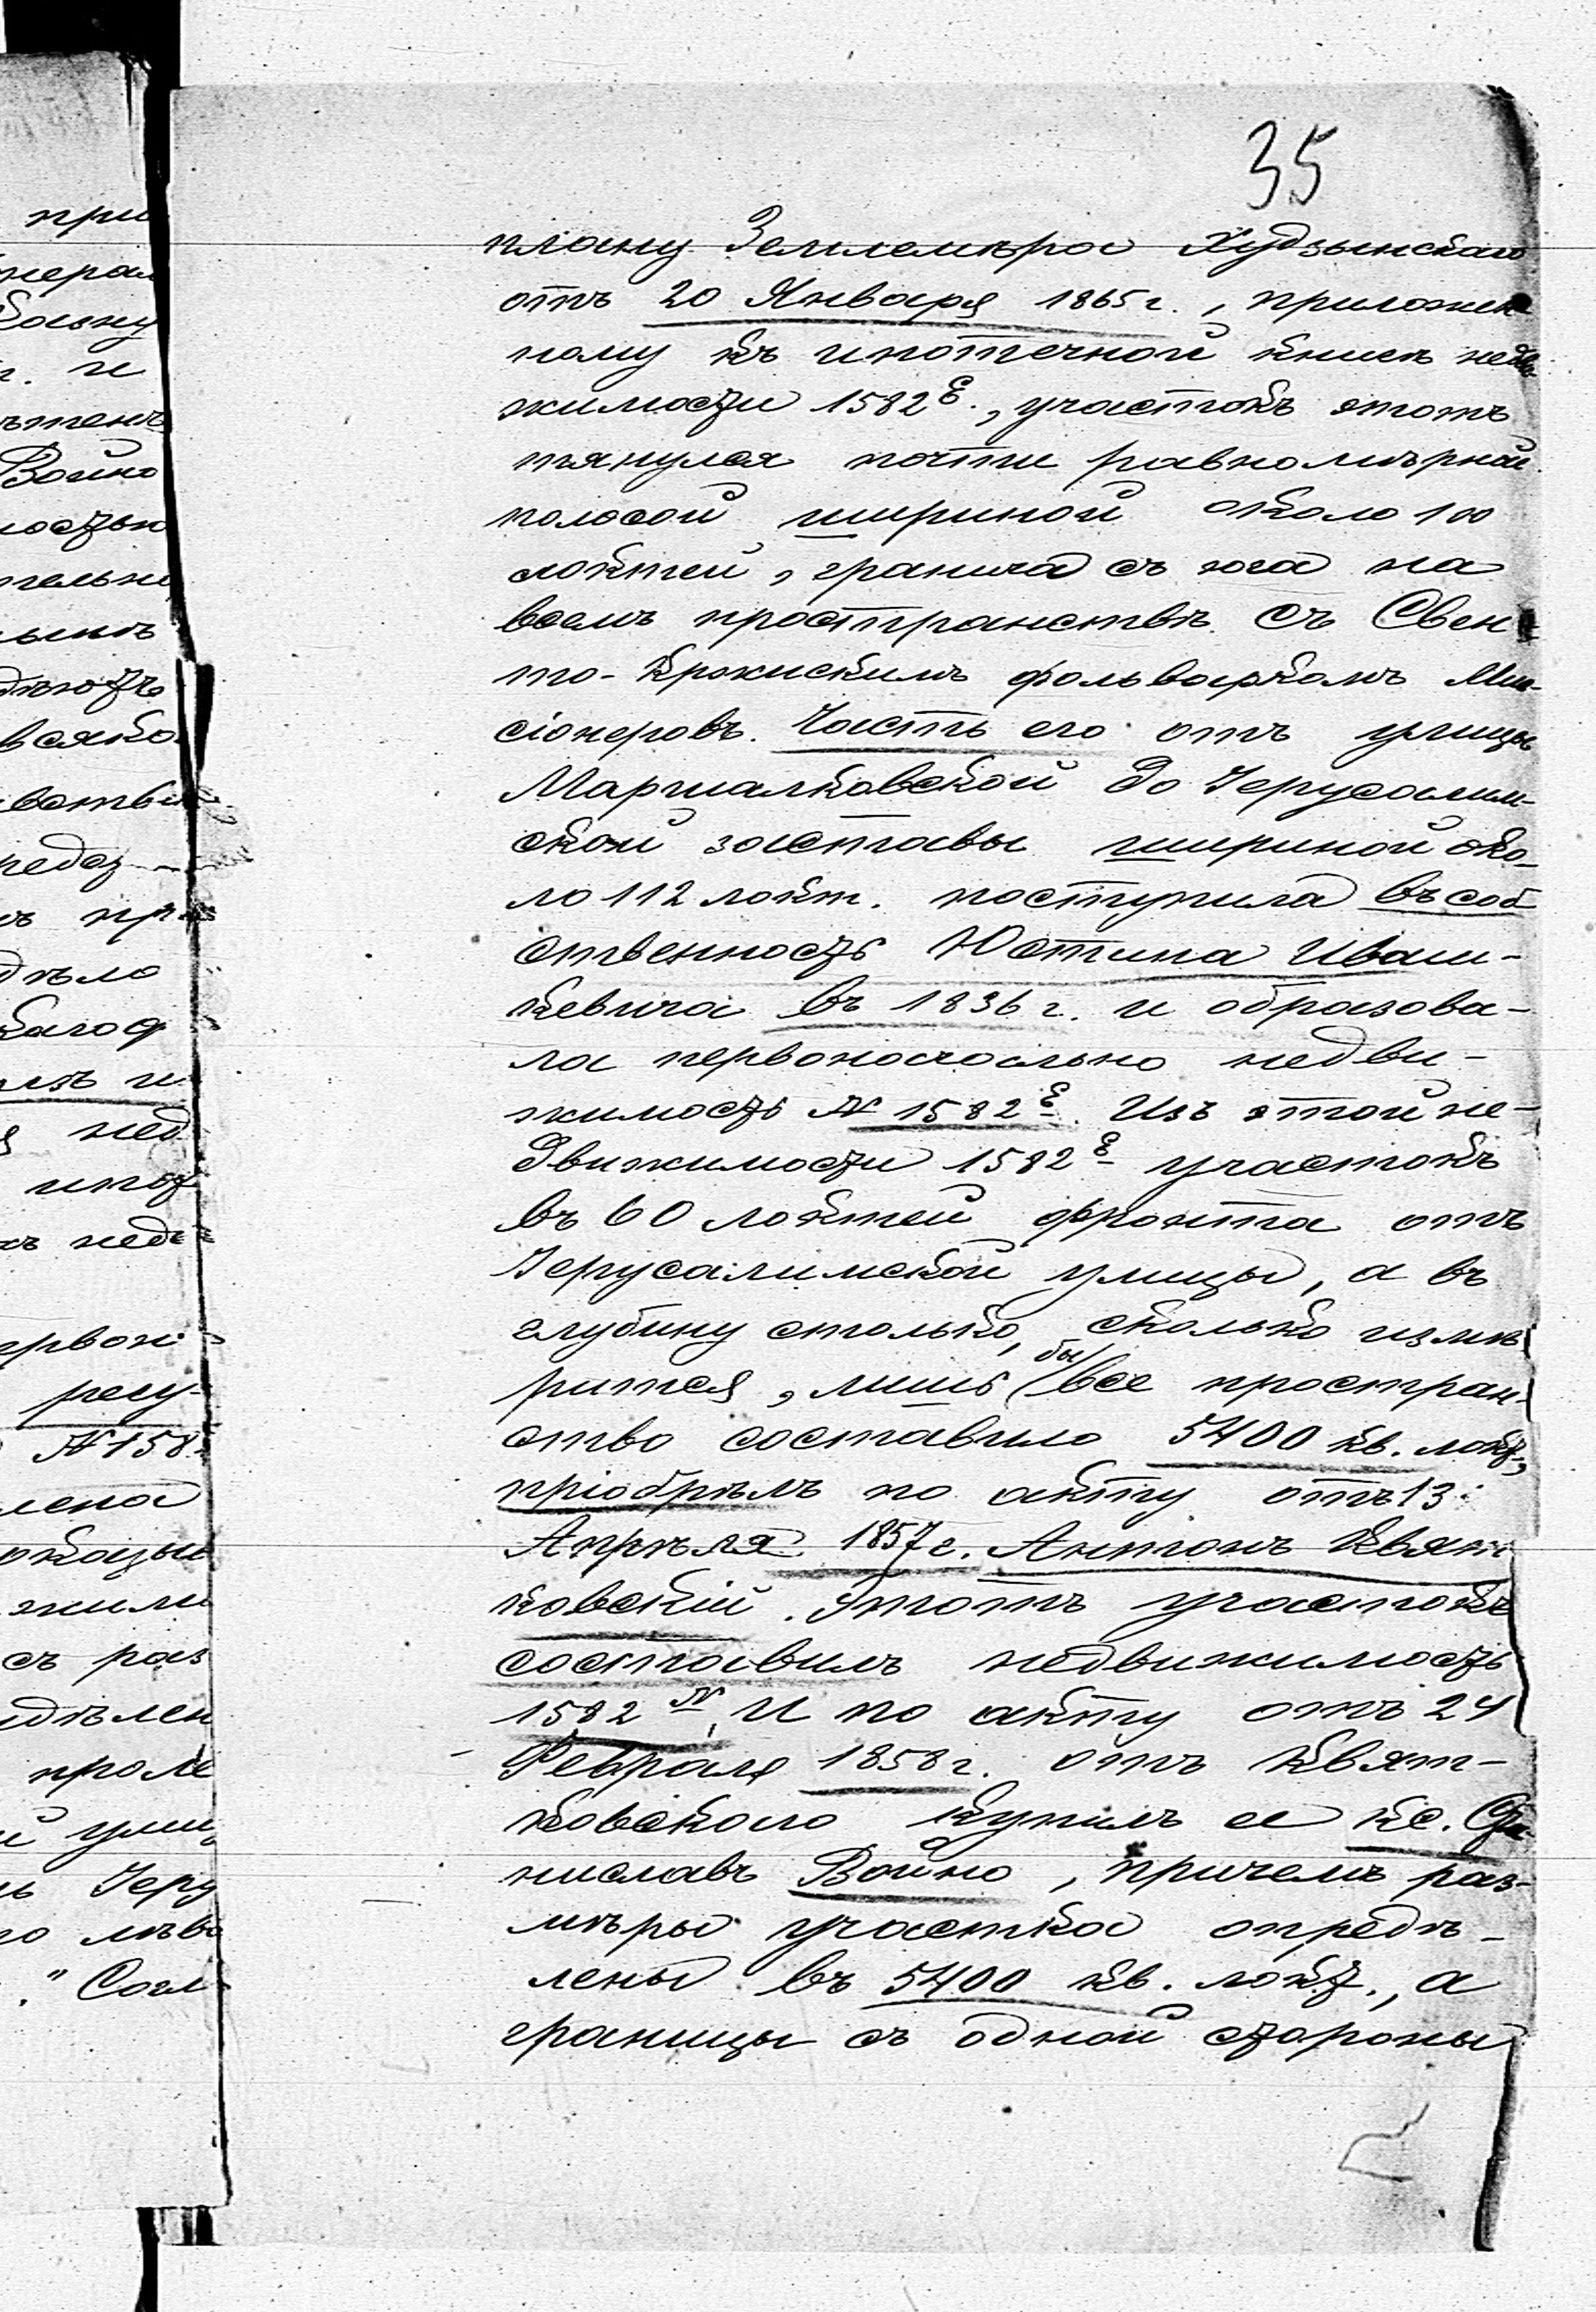 35
плану Землемѣра Худзынскаго
отъ 20 Января 1865 г., приложен
ному къ ипотечной книгѣ недви-
жимости 1582 E., участокъ этотъ
тянулся почти равномѣрной
полосой шириной около 100
локтей, гранича съ юга на
всемъ пространствѣ съ Свен
то-Крожискимъ фольваркомъ Мис-
сіонеровъ. Часть его отъ улицы
Маршалковской до Іерусалим-
ской заставы шириной око-
ло 112 локт. поступила въ соб
ственность Юстина Иваш-
кевича въ 1836 г. и образова-
ла первоначально недви-
жимость № 1582 E. Изъ этой не-
движимости 1582 E участокъ
въ 60 локтей фронта отъ
Іерусалимской улицы, а въ
глубину столько, сколько измѣ
рится, лишь бы все простран-
ство составило 5400 кв. локт.,
пріобрѣлъ по акту отъ 13
Апрѣля 1857 г. Антонъ Квят
ковскій. Этотъ участокъ
составилъ недвижимость
1582 N, И по акту отъ 24
Февраля 1858 г. отъ Квят-
ковскаго купилъ ее кс. Ста
ниславъ Войно, причемъ раз-
мѣры участка опредѣ-
лены въ 5400 кв. локт., а
границы съ одной стороны
при
нерал
г. и
Войно
ностью
тельно
всяко
ъ пр
дѣло
каго
нед
ъ нед
первон
N 158
жили
съ раз
дѣлен
й ули
ь Іеру
." Согл